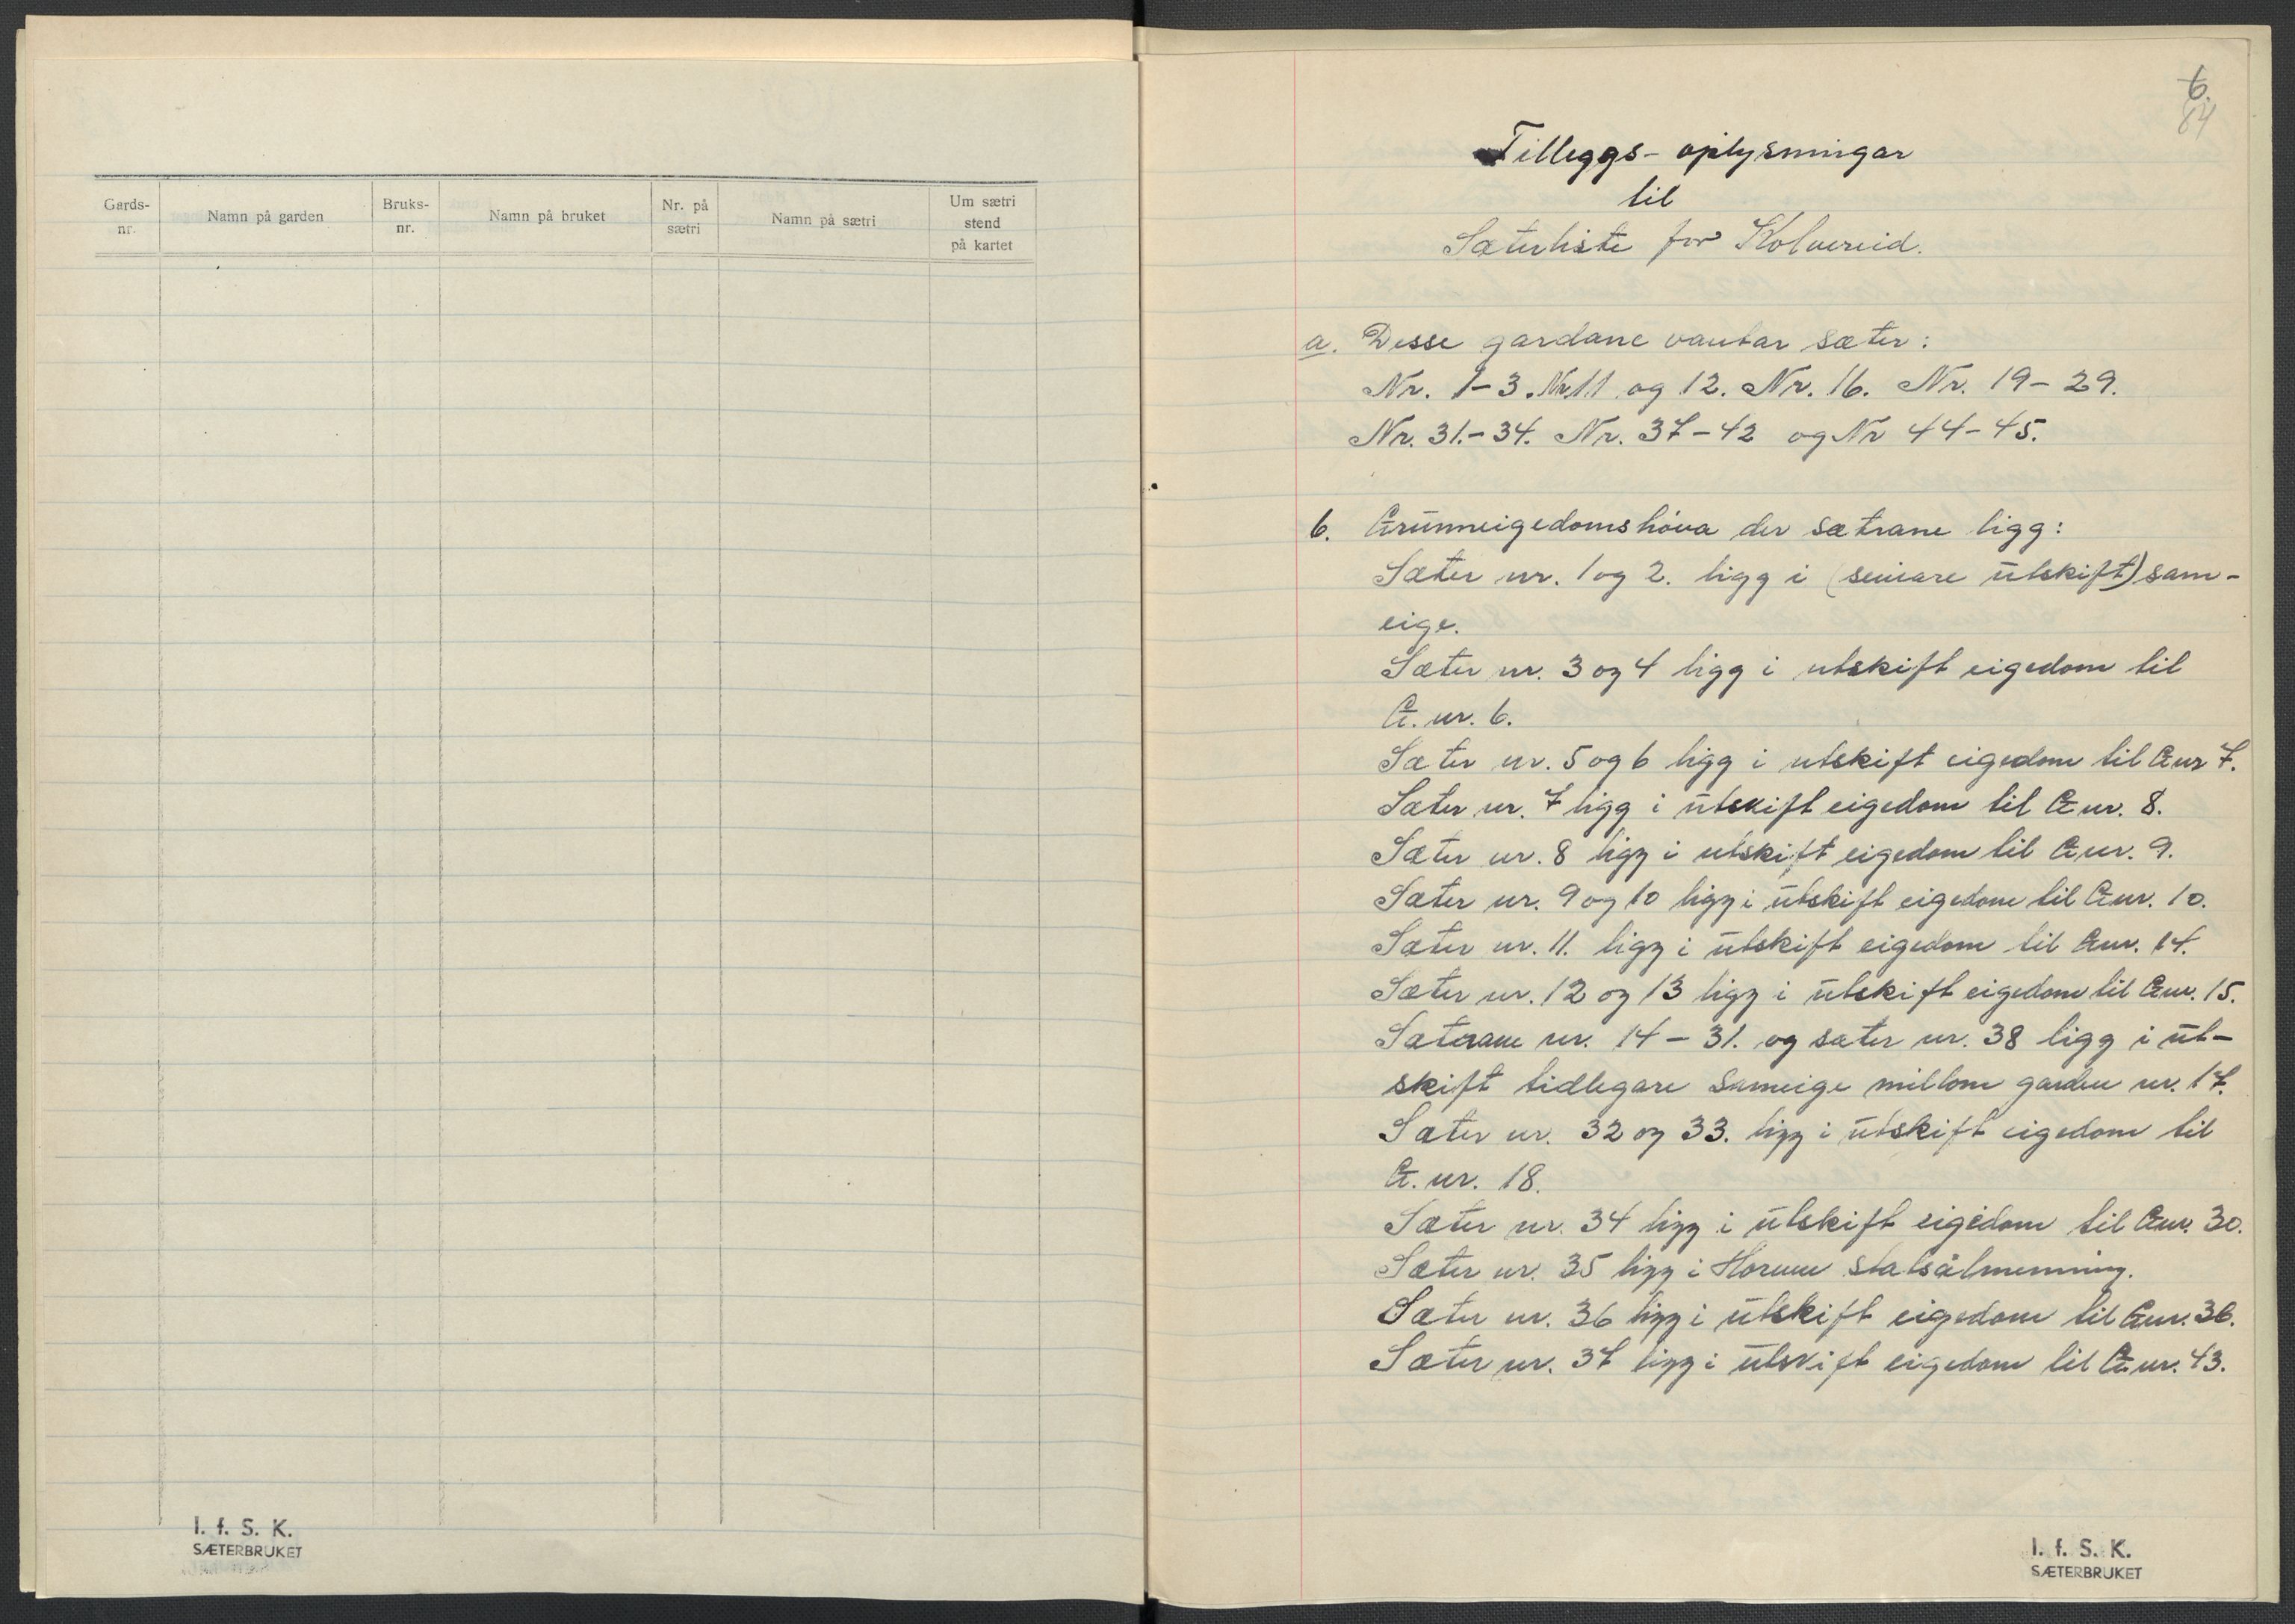 Gards-
nr.
Namn på garden
Bruks-
nr.
Namn på bruket
Nr. på
sætri
Namn på sætri
Um sætri
stend
på kartet
I. f. S. K.
SÆTERBRUKET
6.
84
Tilleggs-oplysningar
til
Sæterliste for Kolvereid.
a. Desse gardane vantar sæter:
Nr. 1-3. Nr. 11 og 12. Nr. 16. Nr. 19-29.
Nr. 31.-34. Nr. 37-42 og Nr 44-45.
b. Grunneigedomshöva der sætrane ligg:
Sæter nr. 1 og 2. ligg i (seinare utskift) sam-
eige.
Sæter nr. 3 og 4 ligg i utskift eigedom til
G. nr. 6.
Sæter nr. 5 og 6 ligg i utskift eigedom til Gnr 7.
Sæter nr. 7 ligg i utskift eigedom til G nr. 8.
Sæter nr. 8 ligg i utskift eigedom til G nr. 9.
Sæter nr. 9 og 10 ligg i utskift eigedom til Gnr. 10.
Sæter nr. 11. ligg i utskift eigedom til Gnr. 14.
Sæter nr. 12 og 13 ligg i utskift eigedom til Gnr. 15.
Sæterane nr. 14-31. og sæter nr. 38 ligg i ut-
skift tidlegare sameige millom garden nr. 17.
Sæter nr. 32 og 33. ligg i utskift eigedom til
G. nr. 18.
Sæter nr. 34 ligg i utskift eigedom til Gnr. 30.
Sæter nr. 35 ligg i statsålmenning.
Sæter nr. 36 ligg i utskift eigedom til Gnr. 36.
Sæter nr. 37 ligg i utskift eigedom til G. nr. 43.
I. f. S. K.
SÆTERBRUKET